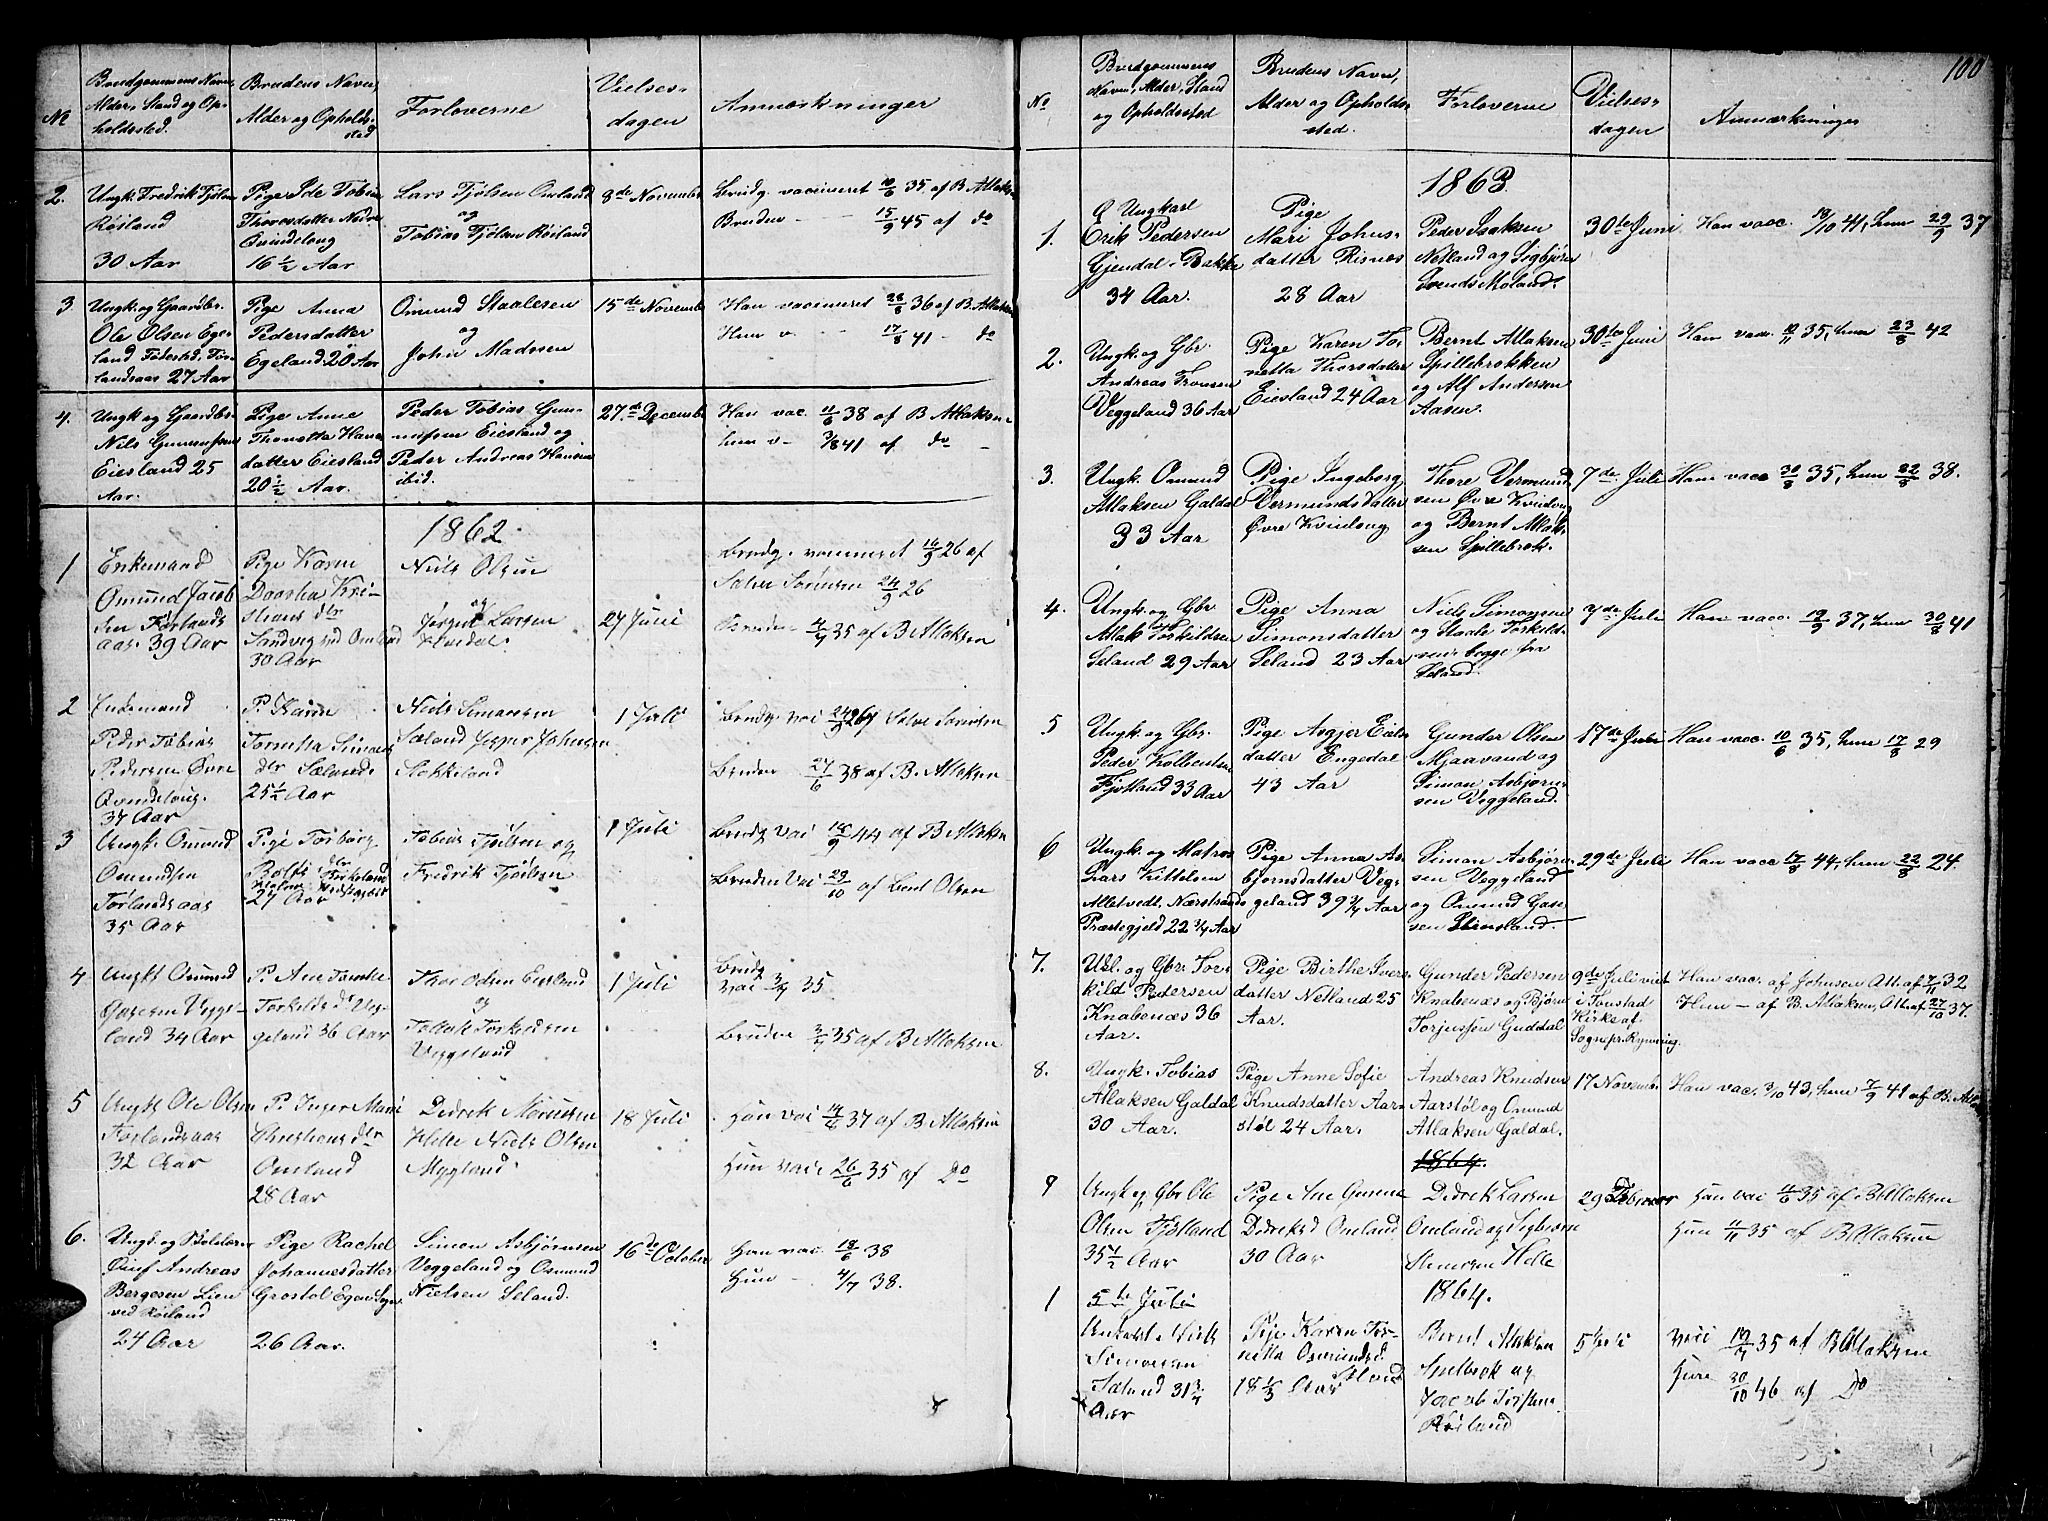 100
No
Brudgommens Navn,
Alder, Stand og Op-
holdssted.
Brudens Navn,
Alder og Opholds-
sted
Forloverne
Vielses-
dagen
Anmærkninger
2.
Ungk. Fredrik Tjølsen
Røiland
30 Aar
Pige Ide Tobia
Thorsdatter Nedre
Qvindelong
16 ½ Aar
Lars Tjølsen Omland
og
Tobias Tjølsen Røiland
8de November
Brudg. vaccineret 10/6 35 af B. Atlaksen
Bruden - - 15/9 45 af do
3.
Ungk. og Gaardbr.
Ole Olsen Ege-
land Fødested, Tør-
landsaas 27 Aar
Pige Anna
Pedersdatter
Egeland 20 Aar
Omund Staalesen
og
John Madssen
15de November
Han vaccineret 28/8 36 af B. Atlaksen
Hun v. - - 17/8 41 - do
4.
Ungk. og Gaardbr.
Nils Gunnufsen
Eiesland 25
Aar.
Pige Anne
Thonetta Hans-
datter Eiesland
20 ½ Aar.
Peder Tobias Gun-
nufsen Eiesland og
Peder Andreas Hansen
ibid.
27de December
Han vac. 11/6 38 af B Atlaksen
hun v- 3/8 41 af do -
1862.
1
Enkemand
Omund Jacob
sen Tørlands
aas. 39 Aar
Pige Karen
Doothea Kri-
stians dtr
Sandvig ved Omland
30 Aar
Niels Olsen
og
Jørgen Larsen
Kvedal.
24 Juni
Brudg. vaccineret 16/9 26 af
Salve Sørensen 24/9 26
Bruden - 4/9 35 af B. Atlaksen
2
Enkemand
Peder Tobias
Pedersen Øvre
Qvindelong.
37 Aar
P. Karen
Tonetta Simons
dtr Sæland.
25½ Aar
Niels Simonsen
Sæland Jesper Johnsen
Stokkeland
1 Juli
Brudg. vai Salve Sørensen
Bruden 27/6 38 af B. Atlaksen
3
Ungk. Omund
Omundsen
Tørlandsaas
35 Aar
Pige Torborg
dtr Birkeland
27 Aar
Tobias Tjølsen og
Fredrik Tjølsen
1 Juli
Brudg vai 18/9 44 af B Atlaksen
Bruden Vai 29/10 af Bent Olsen
4
Ungk Omund
Gasesen Vegge-
land 34 Aar
P. Ane Tomine
Torkilds d Veg-
geland 36 Aar
Thor Odsen Eiesland
og
Tollak Torkildsen
Veggeland
1 Juli
Brudg
vai 3/7 35
Bruden 3/7 35 af B Atlaksen
5
Ungk Ole Olsen
Tørlandsaas
32 Aar
P. Inger Marie
Christians dtr
Omland
28 Aar
Didrik
Helle Niels Olsen
Mygland.
18 Juli
Han vai 14/6 37 af B Atlaksen
Hun vai 26/6 35 af Do
6.
Ungk. og
Andreas
Bergesen Lien
ved Røiland
24 Aar
Pige Rachel
Johannesdatter
Grostøl Egen Sogn
26 Aar.
Simon Asbjørnsen
Veggeland og Osmund
Nielsen Seland.
16de October
Han vai. 18/6 38
Hun - 4/7 38.
No
Brudgommens
Navn, Alder, Stand
og Opholdssted
Brudens Navn,
Alder og Opholds-
sted.
Forloverne
Vielses-
dagen
Anmærkninger
1863.
1.
Ungkarl
Erik Pedersen
Gjendal i Bakke
34 Aar.
Pige
Mari Johns-
datter Risnæs
28 Aar
Peder Isaksen
Netland og Sigbjørn
Svends. Moland.
30te Juni
Han vacc. 18/10 41, hun 29/9 37
2.
Ungk. og Gbr.
Andreas Tronsen
Veggeland 36 Aar
Pige Karen To-
netta Thorsdatter
Eiesland 24 Aar
Bernt Atlaksen
Spillebrokken
og Alf Andersen
Aasen.
30te Juni
Han vac. 35, hun 23/8 42
3.
Ungk. Omund
Atlaksen Galdal
33 Aar
Pige Ingeborg
Vermundsdatter
Øvre Kvinlog
Thore Vermund-
sen Øvre Kvinlog
og Bernt Atlak-
sen Spillebrok.
7de Juli
Han vacc 30/8 35, hun 22/8 38.
4.
Ungk. og Gbr.
Atlak Torkildsen
Seland 29 Aar
Pige Anna
Simonsdatter
Seland 23 Aar
Niels Simonsen
og Staale Torkild-
sen begge fra
Seland.
7de Juli
Han vacc. 19/9 37, hun 30/8 41
5
Ungk. og Gbr.
Peder Kolbentsen
Fjotland 33 Aar
Pige Asgjer Eiels-
datter Engedal
43 Aar
Gunder Olsen
Mjaavand og
Simon Asbjørn-
sen Veggeland.
17de Juli
Han vacc. 10/6 35, hun 17/8 29
6
Ungk. og Matros
Lars Kittelsen
Alletvedt. Nærstrands
Præstegjeld 22 ¾ Aar
Pige Anna As-
bjørnsdatter Veg-
geland 39 ¾ Aar
Simon Asbjørn-
sen Veggeland
og Omund Gas-
sen Stensland.
29de Juli
Han vacc 17/8 44, hun 22/8 24.
7.
Ubl. og Gbr. Tor-
kild Pedersen
Knabenæs 36
Aar.
Pige Birthe Ivers-
datter Netland 25
Aar.
Gunder Pedersen
Knabenæs og Bjørn
Torjussen Guddal
9de Juli viet
i Tonstad
Kirke af
Sognepr.
Han vac. af Johnsen Att. af 7/11 32
Hun - af B. Atlaksen, Att. af 27/10 37.
8.
Ungk. Tobias
Atlaksen Galdal
30 Aar.
Pige Anne Sofie
Knudsdatter Aar-
støl 24 Aar.
Andreas Knudsen
Aarstøl og Omund
Atlaksen Galdal.
17 November
Han vac. 3/10 43, hun 7/9 41 af B. Atl
1864.
9
Ungk og Gbr Ole
Olsen Fjotland
35 ½ Aar
Pige Ane Gurine
Didriksd Omland
30 Aar
Didrik Larsen
Omland og Sigbjørn
Stenersen Helle
29 Februar
Han vai 11/6 35 af B Atlaksen
Hun 11/11 35 af B Atlaksen
1864.
1
5te Juli
Ungk Niels
Simonsen
Sæland 31 ¾
Aar
Pige Karen Tor-
netta Osmundsd.
Sland
18 ⅓ Aar
Bernt Atlaksen
Spelbrok og
Jacob
Røiland
5 Juli
vaci 19/7 35 af B Atlaksen
Hun 30/10 46 af Do